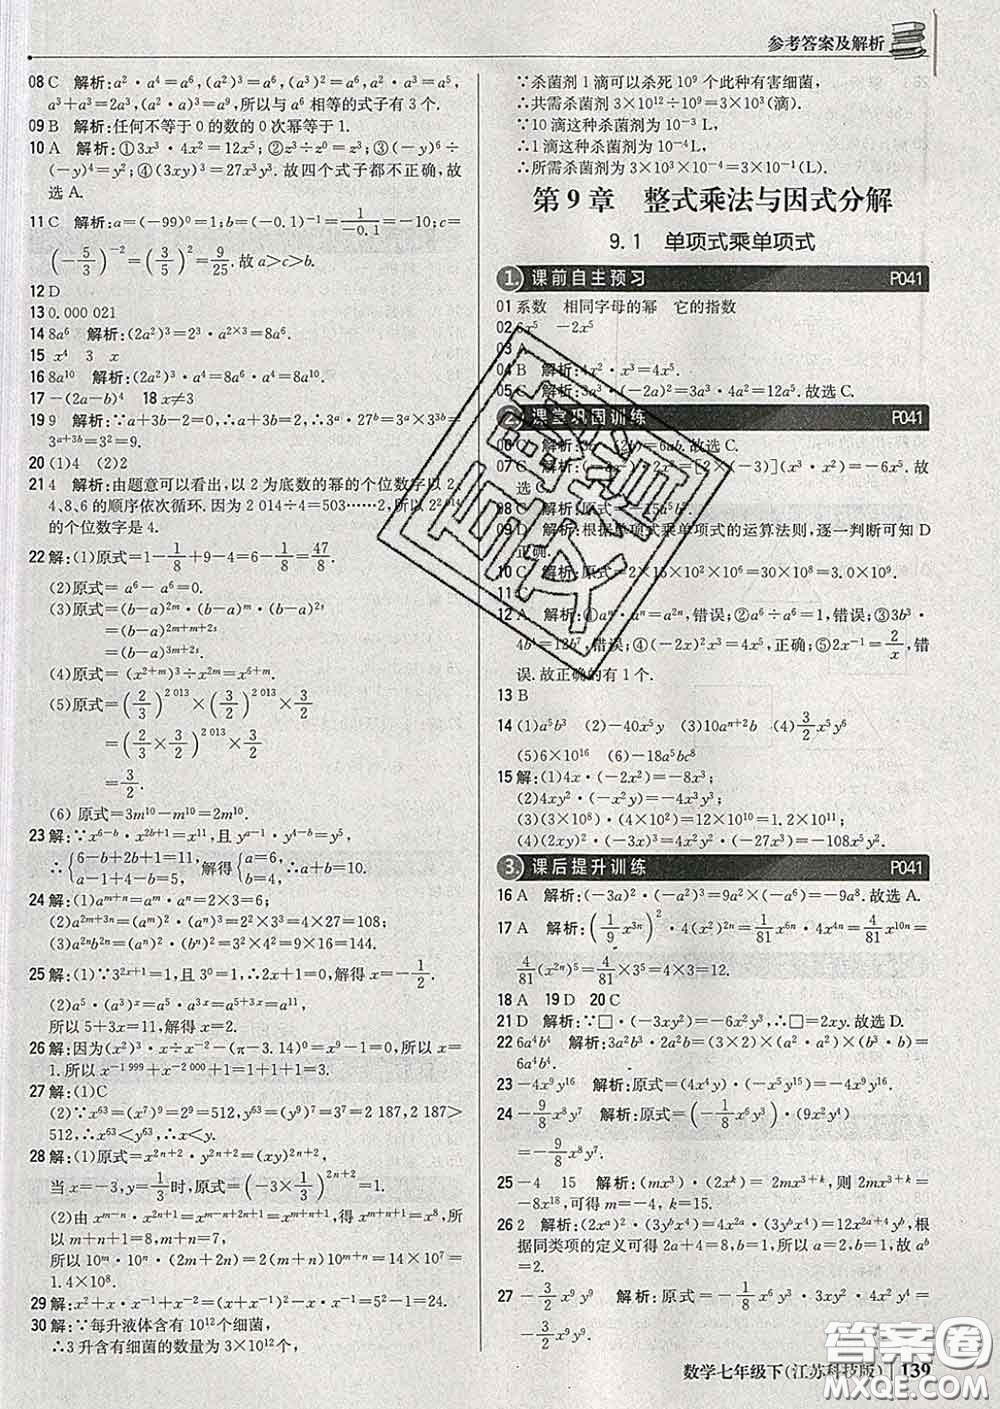 参考答案及解析
08 C 解析:a²·a⁴=a⁶,a⁶÷a=a⁵,a³·a²=a⁵,a³·a³=a⁶,
a³+a³=2a³,(a³)³=a⁹,所以与a⁶相等的式子有3个.
09 B 解析:任何不等于0的数的0次幂等于1.
10 A 解析:①3x³·4x²=12x⁵;②z³÷z⁰=z³;③(-y)⁶÷
(-y)⁴=y²;④(3xy)³=27x³y³.故四个式子都不正确.故
选A.
11 C 解析:a=(-99)⁰=1;b=(-0.1)⁻¹=1/-0.1=-10;c=
(-5/3)⁻²=(3/5)²=9/25.故a>c>b.
12 D
13 0.000 021
14 8a⁶ 解析:(2a²)³=2³·a^(2×3)=8a⁶.
15 x⁴ 3 x
16 8a¹⁰ 解析:(2a²)³·a⁴=8a⁶·a⁴=8a¹⁰.
17 -(2a-b)⁴ 18 x≠3
19 9 解析:∵a+3b-2=0,∴a+3b=2,∴3^a·27^b=3^a·3^(3b)=
3^(a+3b)=3²=9.
20 (1)4 (2)2
21 4 解析:由题意可以看出,以2为底数的幂的个位数字以2、
4、8、6的顺序依次循环.因为2 014÷4=503……2,所以2²⁰¹⁴
的个位数字是4.
22 解:(1)原式=1-1/8+9-4=6-1/8=47/8.
(2)原式=a⁶-a⁶=0.
(3)原式=(b-a)^(2m)·(b-a)^m·(b-a)²
=(b-a)^(2m+m+2)
=(b-a)^(3m+2).
(4)原式=(x^(2+m))³÷x^(2m)=x^(m+6).
(5)原式=(2/3)^(2 013)×(3/2)^(2 013)×3/2
=(2/3×3/2)^(2 013)×3/2
=3/2.
(6)原式=3m¹⁰-m¹⁰=2m¹⁰.
23 解:∵x^(6-b)·x^(2b+1)=x¹¹,且y^(a-1)·y^(4-b)=y⁵,
∴{6-b+2b+1=11, a-1+4-b=5, 解得{a=6, b=4.
24 解:(1)a^(m+n)=a^m·a^n=2×3=6;
(2)a^(2m+3n)=(a^m)²·(a^n)³=4×27=108;
(3)a^(2n)b^(2n)=(a^n)²·(b^n)²=3²×4²=9×16=144.
25 解:(1)∵3^(2x+1)=1,且3⁰=1,∴2x+1=0,解得x=-1/2.
(2)a⁵·(a^x)³=a⁵·a^(3x)=a^(5+3x)=a¹¹,
所以5+3x=11,解得x=2.
26 解:因为(x²)³·x÷x⁻²-(π-3.14)⁰=x⁹-1=0,所以x=
1.所以x^(-1 999)+x^(-2 000)+1=1+1+1=3.
27 解:(1)C
(2)∵x⁶³=(x⁷)⁹=2⁹=512,y⁶³=(y⁹)⁷=3⁷=2 187,2 187>
512,∴x⁶³<y⁶³,∴x<y.
28 解:(1)原式=x^(2n+2)·y^(2n+2)=(xy)^(2n+2).
当x=-3,y=1/3时,原式=(-3×1/3)^(2n+2)=1.
(2)由x^(m-n)·x^(2n+1)=x^(m-n+2n+1)=x^(m+n+1),得x^(m+n+1)=x⁸,所
以m+n+1=8,m+n=7,
所以10^m·(2m+2n)=2(m+n)·10^(m+n)=14×10⁷=
1.4×10⁸.
29 解:x²+x·x⁻¹+x⁻²=(x+x⁻¹)²-x·x⁻¹=5²-1=24.
30 解:∵每升液体含有10¹²个细菌,
∴3升含有细菌的数量为3×10¹²个,
∵杀菌剂1滴可以杀死10⁹个此种有害细菌,
∴共需杀菌剂3×10¹²÷10⁹=3×10³(滴).
∵10滴这种杀菌剂为10⁻³L,
∴1滴这种杀菌剂为10⁻⁴L,
∴所需杀菌剂为3×10³×10⁻⁴=3×10⁻¹(L).
第9章 整式乘法与因式分解
9.1 单项式乘单项式
1. 课前自主预习 P041
01 系数 相同字母的幂 它的指数
02 6x⁵ -2x⁵
03 A
04 B 解析:4x²·x³=4x⁵.
05 C 解析:3a³·(-2a)²=3a³·4a²=12a⁵.故选C.
2. 课堂巩固训练 P041
06 C 解析:3a·(2b)=6ab.故选C.
07 C =[2×(-3)](x³·x²)=-6x⁵.故
选C.
08 C
09 D 解析:根据单项式乘单项式的运算法则,逐一判断可知D
正确.
10 C 解析:原式=2×15×10²×10⁶=30×10⁸=3.0×10⁹.
11 C
12 A 解析:①a^n·a^n=a^(2n),错误;②a⁶÷a⁶=1,错误;③3b³·
4b⁴=12b⁷,错误;④(-2x²y³)·5xy²=-10x³y⁵,正确;⑤2x⁻¹=2/x,错
误.故正确的有1个.
13 B
14 (1)a⁵b³ (2)-40x⁵y (3)10a^(n+2)b (4)3/2x⁵y⁶
(5)6×10¹⁶ (6)-18a⁵bc⁸
15 解:(1)4x·(-2x²)=-8x³;
(2)4xy²·(-x²y)=-4x³y³;
(3)(3×10⁸)·(4×10²)=12×10¹⁰=1.2×10¹¹;
(4)(2xy²)²·(-3x)³=4x²y⁴·(-27x³)=-108x⁵y⁴.
3. 课后提升训练 P041
16 A 解析:(-3a)²·(-a²)³=9a²×(-a⁶)=-9a⁸.故选A.
17 A 解析:(1/9x^(3n))²·4(x²)^(2n)=4/81x^(6n)·4x^(4n)=4/81x^(10n)=
4/81(x^(2n))⁵=4/81×3⁵=4×3=12.
18 A 19 D 20 C
21 D 解析:∵□·(-3xy²)=-6x²y³,∴□=2xy.故选D.
22 6a⁴b⁴ 解析:3a²b³·2a²b=(3×2)×(a²·a²)×(b³·b)=
6a⁴b⁴.
23 -4x⁹y¹⁶ 解析:原式=(4x⁶y⁴)·(-x³y¹²)=-4x⁹y¹⁶.
24 -9/8x⁸y⁷ 解析:原式=(-1/8x⁶y³)·(9x²y⁴)
=-9/8x⁸y⁷.
25 -4 15 解析:(mx³)·(2x^k)=2mx^(3+k),则2mx^(3+k)=
-8x¹⁸,可得m=-4,k=15.
26 2 解析:(2x^a)²·(3y^bx⁴)=4x^(2a)·(3y^bx⁴)=12x^(2a+4)y^b,根
据同类项的定义可得2a+4=8,b=1.所以a=2,b=1.故a^b
=2.
27 -3/2x⁹y³ 解析:原式=-1/8x⁶y³·3x²·4x=
-3/2x⁹y³.
答案圈
MXQE.COM
数学七年级下(江苏科技版) 139